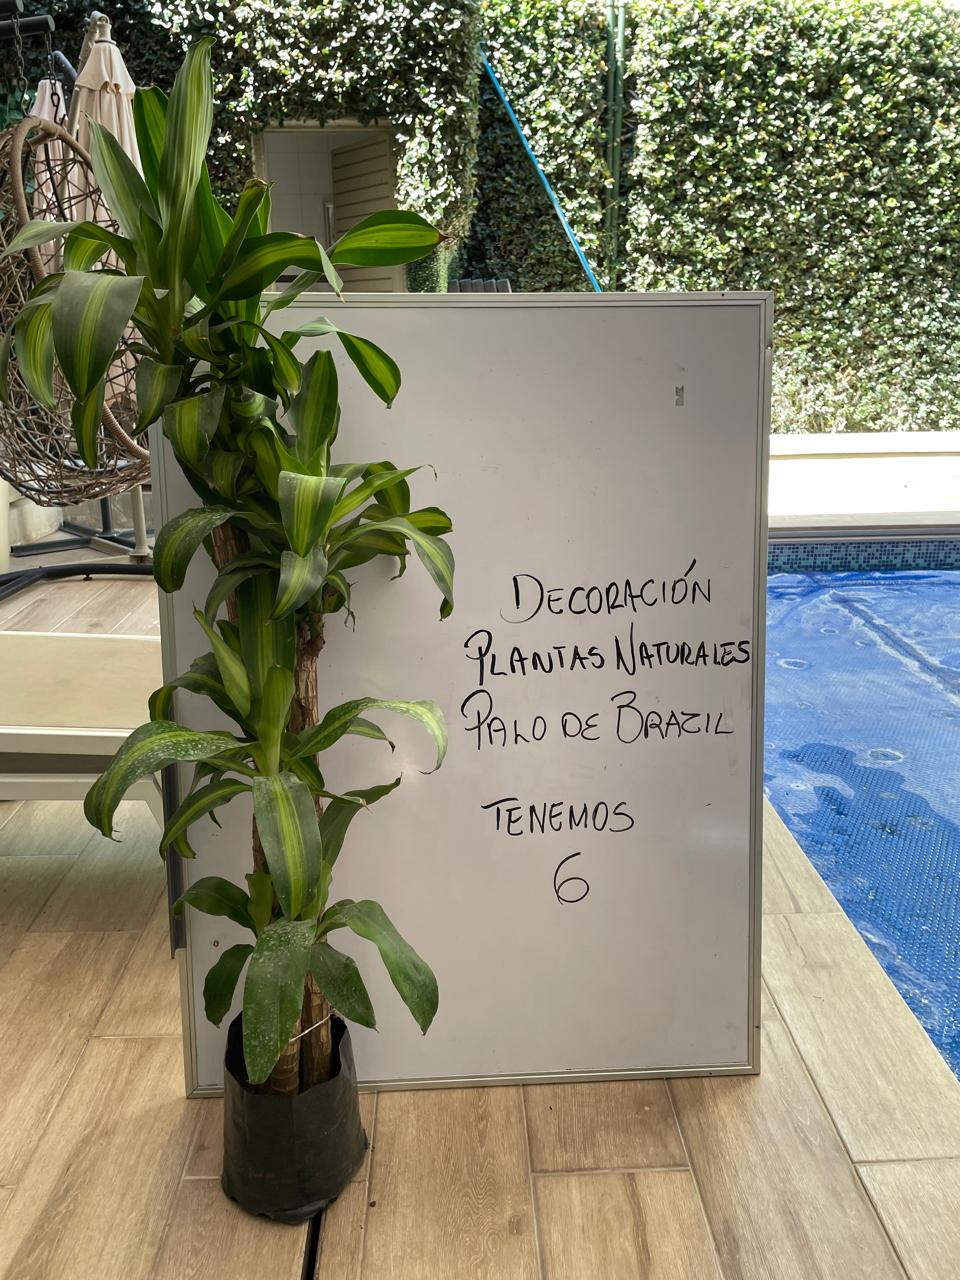 DECORACIÓN
PLANTAS NATURALES
PALO DE BRAZIL
TENEMOS
6